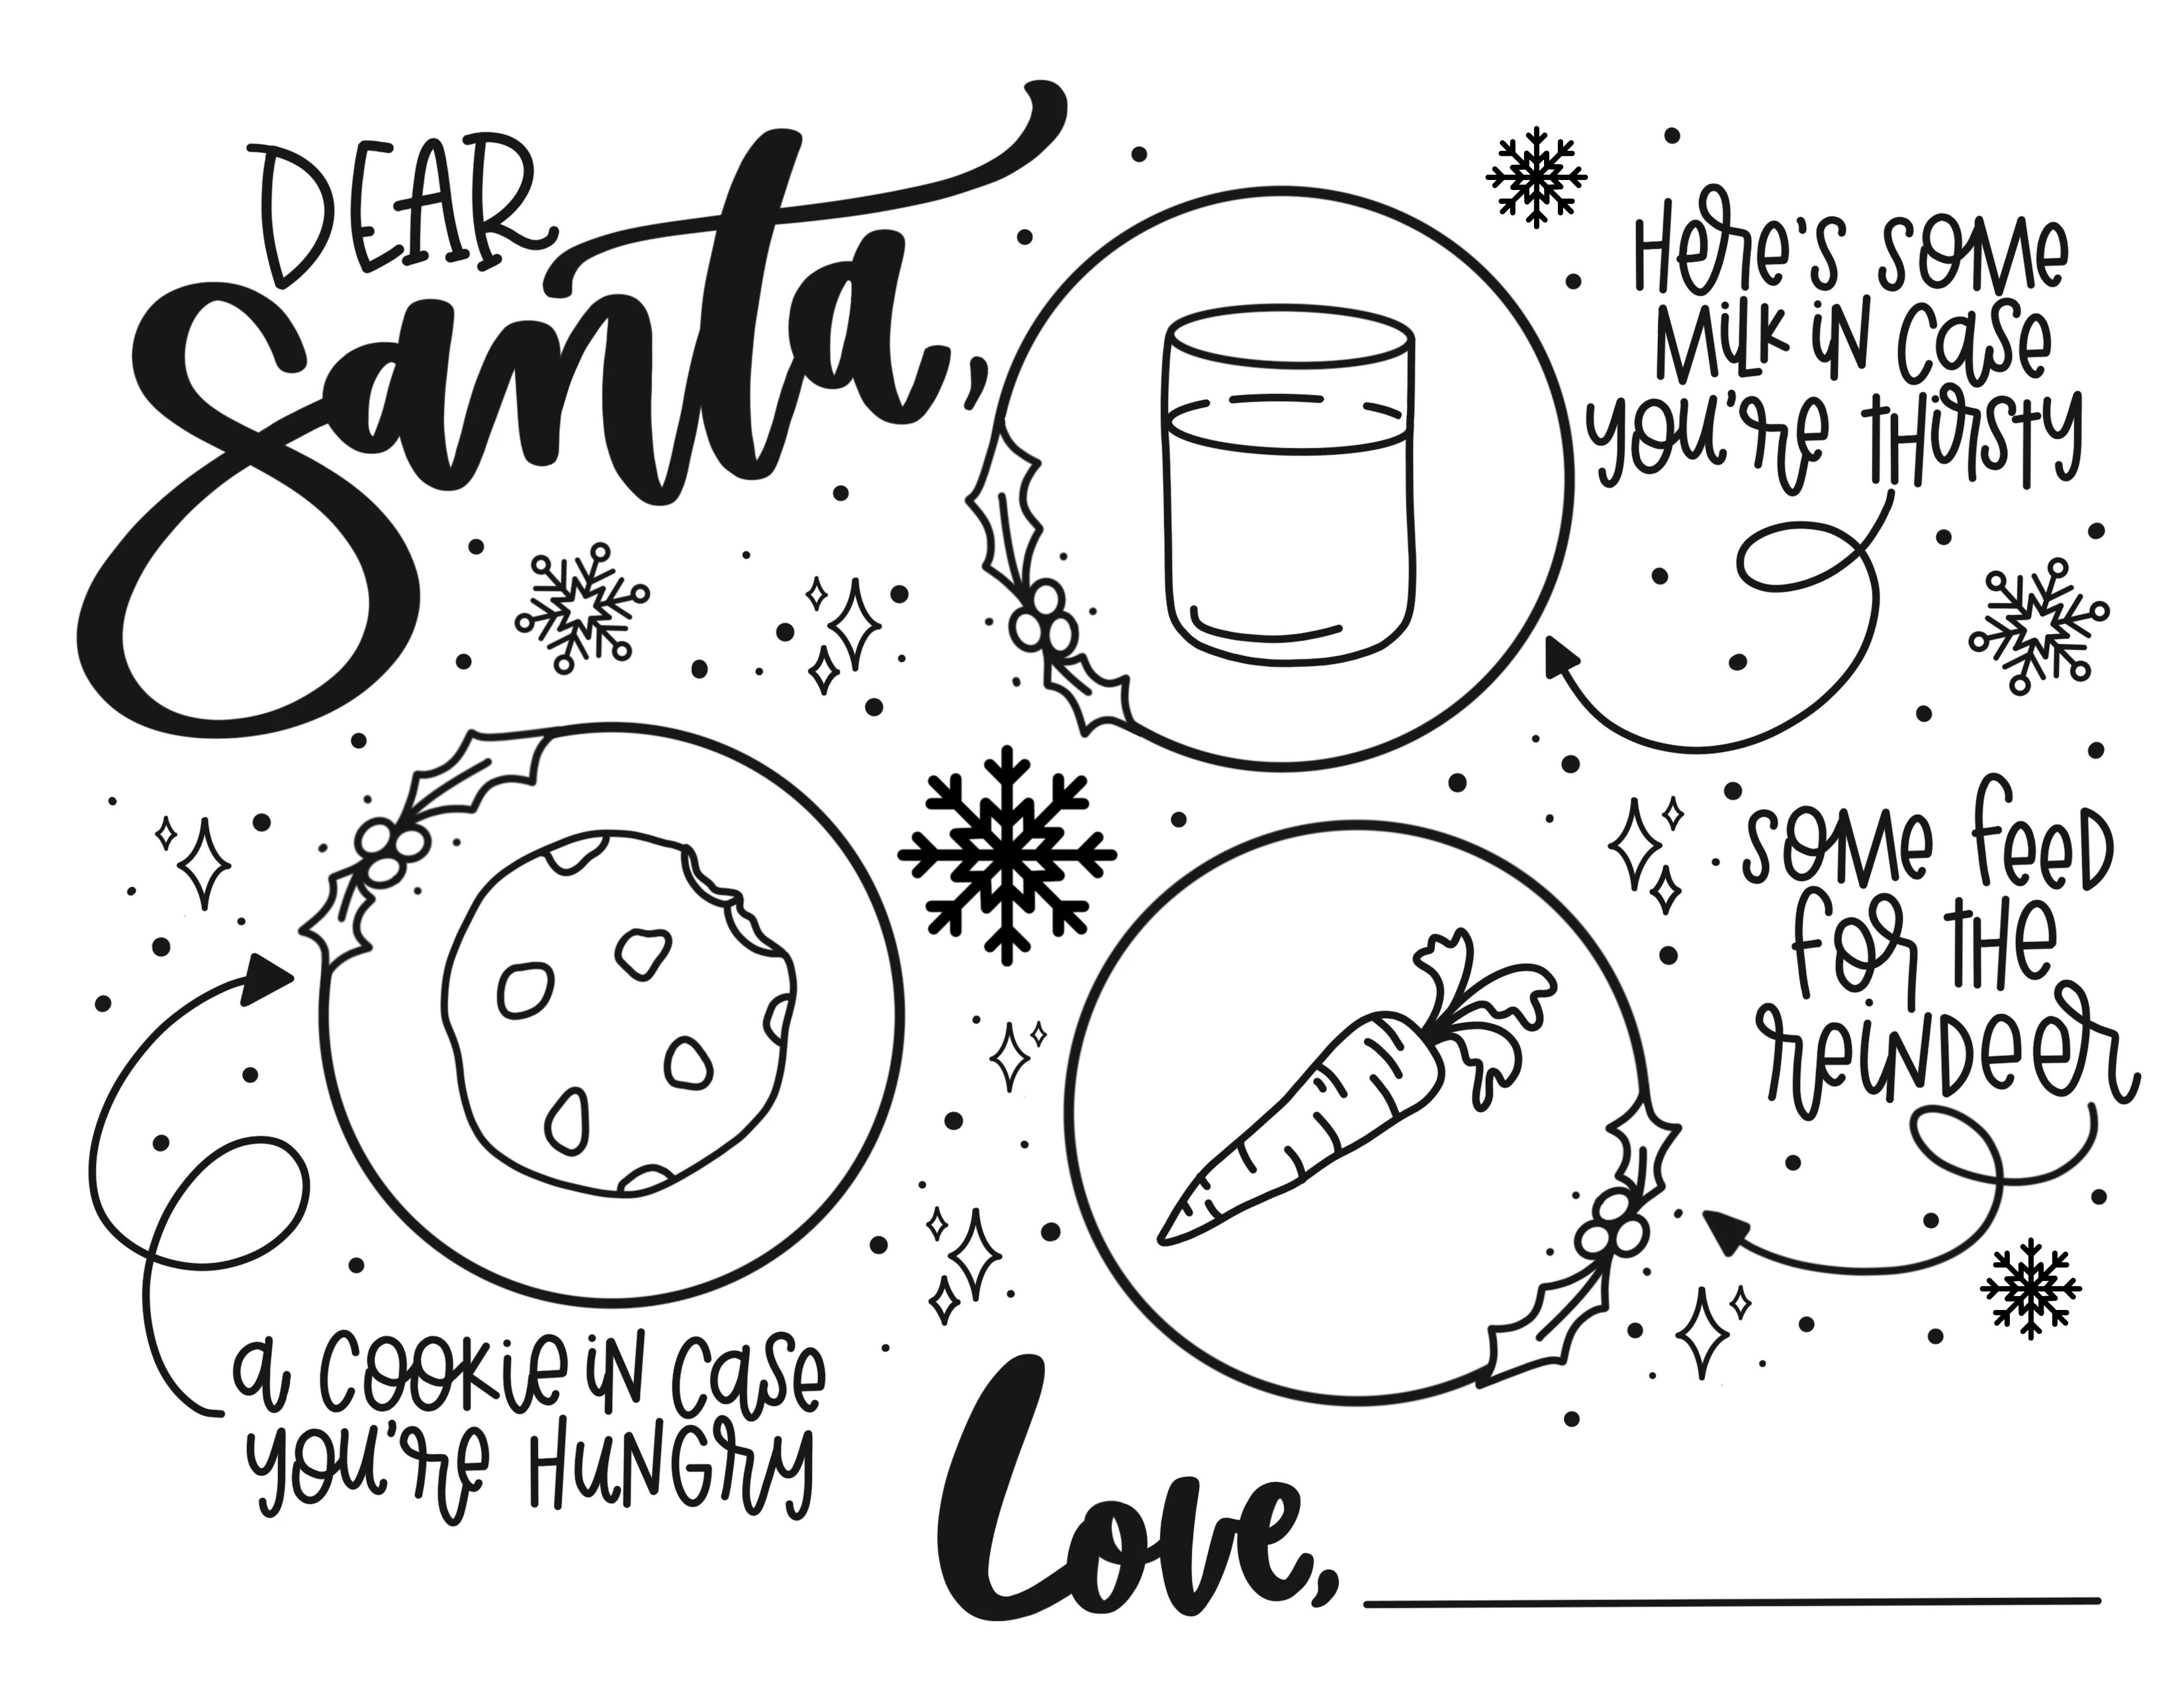 DEAR
Santa,
Here's some
Milk in case
you're thirsty
a cookie in case
you're hungry
some feed
for the
reindeer
Love,